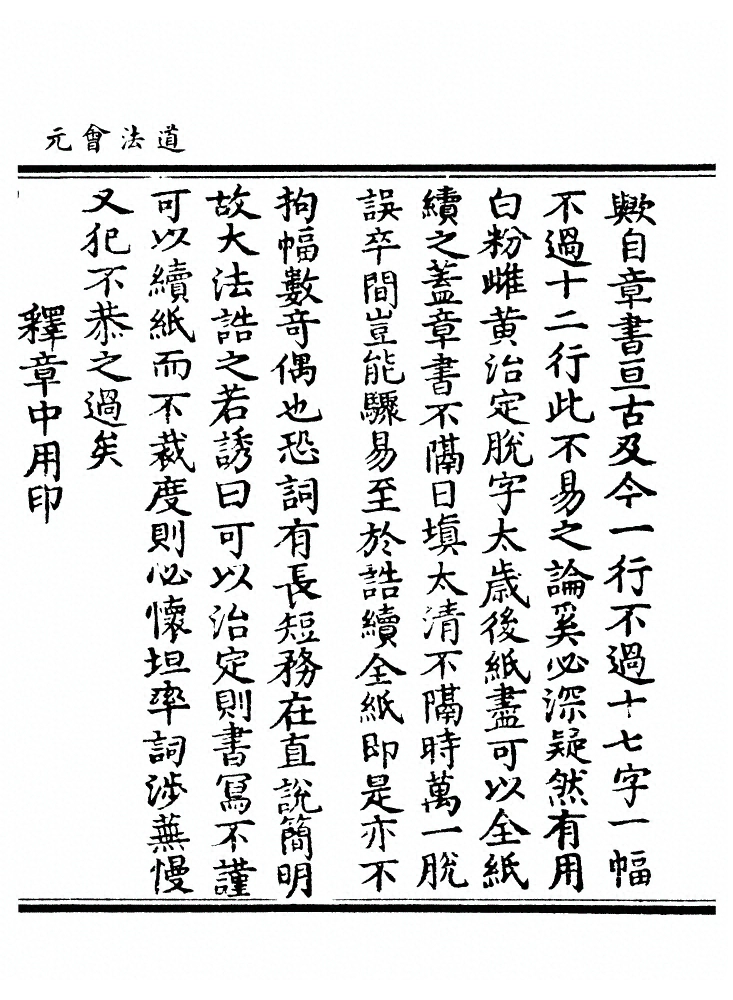 道法會元
歟自章書亘古及今一行不過十七字一幅
不過十二行此不易之論奚必深疑然有用
白粉雌黄治定脫字太歲後紙盡可以全紙
續之蓋章書不隔日填太清不隔時萬一脫
誤卒間豈能驟易至於誥續全紙即是亦不
拘幅數奇偶也恐詞有長短務在直說簡明
故大法誥之若誘曰可以治定則書寫不謹
可以續紙而不裁度則必懷坦率詞涉蕪慢
又犯不恭之過矣
釋章中用印